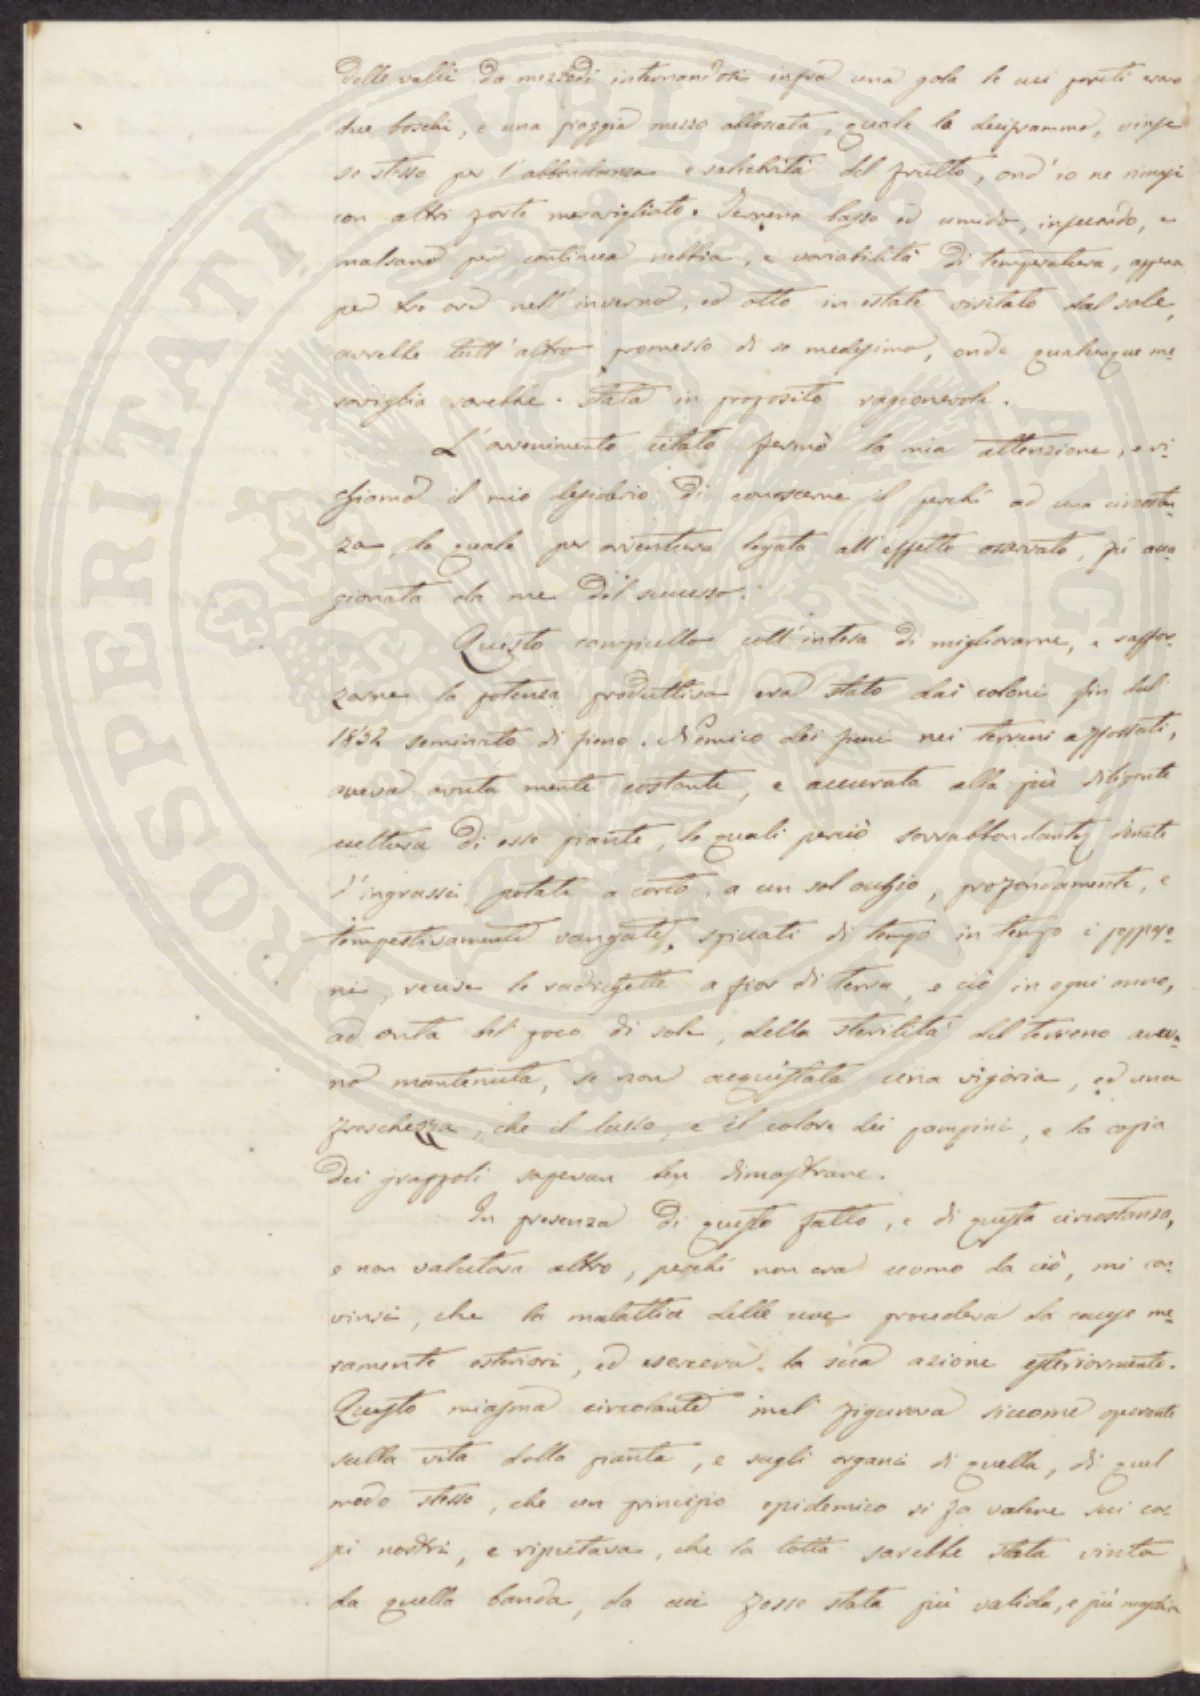 delle valli da mezzodì internandosi infra una gola le cui pareti erano
due boschi, e una piaggia mezzo alloscata, quale la deciframmo, vinse
se stesso per l'abbondanza e salubrità del frutto, ond'io ne rimasi
con altri forte meravigliato. Terreno basso ed umido, infecondo, e
malsano per continua nebbia, e variabilità di temperatura, appena
per tre ore nell'inverno, ed otto in estate visitato dal sole,
avrebbe tutt'altro promesso di se medesimo, onde qualunque me-
raviglia sarebbe stata in proposito ragionevole.
L'avvenimento citato fermò la mia attenzione, e ri-
chiamò il mio desiderio di conoscerne il perché ad una circostan-
za, la quale per avventura legata all'effetto osservato, fu
gionata da me del successo.
Questo campicello coll'intesa di migliorarne, e raffor-
zarne la potenza produttiva era stato dai coloni fin dal
1832 seminato di fieno. Nemico dei fieni nei terreni appostati,
aveva avuta mente costante, e accurata alla più diligente
cultura di esse piante, le quali perciò sovrabbondantej
d'ingrassi, potate a corto, a un sol occhio, profondamente, e
tempestivamente vangate, spiccati di tempo in tempo i
ni, recise le radichette a fior di terra, e ciò in ogni anno,
ad onta del poco di sole, della sterilità del terreno aveva-
no mantenuta, se non acquistata una vigoria, ed una
freschezza, che il lusso, e il colore dei pampini, e la copia
dei grappoli sapevan ben dimostrare.
In presenza di questo fatto, e di questa circostanza,
e non valutava altro, perché non era uomo da ciò, mi con-
vinsi, che la malattia delle uve procedeva da cause me-
ramente esteriori, ed eserceva la sua azione esteriormente.
Questo miasma circolante mel figurava siccome operante
sulla vita della pianta, e sugli organi di quella, di quel
modo stesso, che un principio epidemico si fa valere sui cor-
pi nostri, e ripeteva, che la lotta sarebbe stata vinta
da quella banda, da cui fosse stata più valida, e più